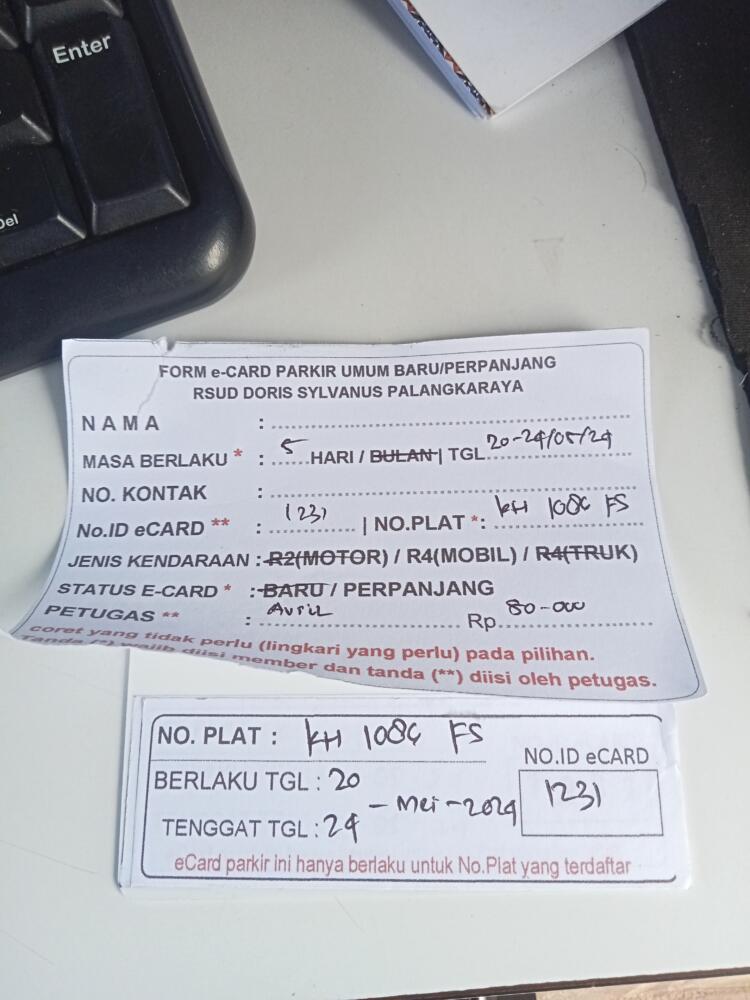 Enter
Del
FORM e-CARD PARKIR UMUM BARU/PERPANJANG
RSUD DORIS SYLVANUS PALANGKARAYA
NAMA :
MASA BERLAKU * : 5 HARI / BULAN | TGL 20-24/05/24
NO. KONTAK :
No.ID eCARD ** : 1231 | NO.PLAT *: KH 1086 FS
JENIS KENDARAAN : R2(MOTOR) / R4(MOBIL) / R4(TRUK)
STATUS E-CARD * : BARU / PERPANJANG
PETUGAS ** : Avril Rp. 80-000
coret yang tidak perlu (lingkari yang perlu) pada pilihan.
Tanda (*) wajib diisi member dan tanda (**) diisi oleh petugas.
NO. PLAT : KH 1086 FS
NO.ID eCARD
BERLAKU TGL : 20
1231
- Mei - 2024
TENGGAT TGL : 24
eCard parkir ini hanya berlaku untuk No.Plat yang terdaftar